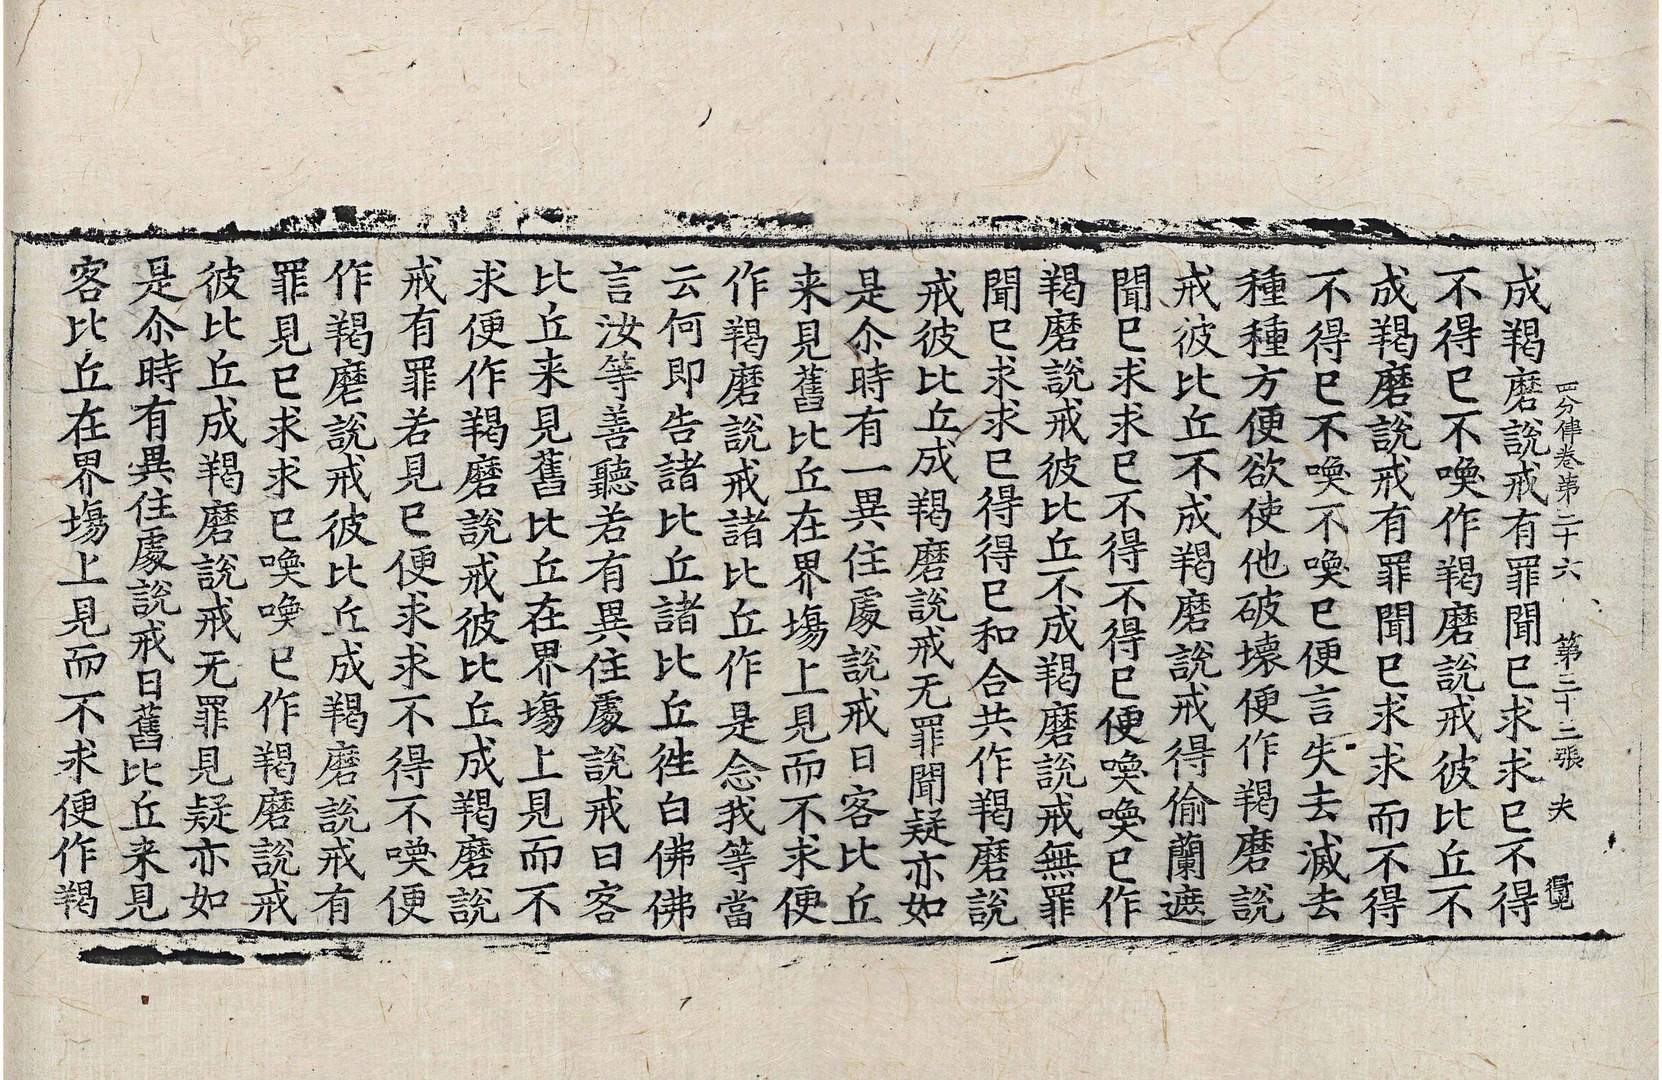 四分律卷第三十六 第二十二張 夫
成羯磨說戒有罪聞已求求已不得
不得已不喚作羯磨說戒彼比丘不
成羯磨說戒有罪聞已求求而不得
不得已不喚不喚已便言失去滅去
種種方便欲使他破壞便作羯磨說
戒彼比丘不成羯磨說戒得偷蘭遮
聞已求求已不得不得已便喚喚已作
羯磨說戒彼比丘不成羯磨說戒無罪
聞已求求已得得已和合共作羯磨說
戒彼比丘成羯磨說戒无罪聞疑亦如
是尒時有一異住處說戒日客比丘
来見舊比丘在界塲上見而不求便
作羯磨說戒諸比丘作是念我等當
云何即告諸比丘諸比丘徃白佛佛
言汝等善聽若有異住處說戒日客
比丘来見舊比丘在界塲上見而不
求便作羯磨說戒彼比丘成羯磨說
戒有罪若見已便求求不得不喚便
作羯磨說戒彼比丘成羯磨說戒有
罪見已求求已喚喚已作羯磨說戒
彼比丘成羯磨說戒无罪見疑亦如
是尒時有異住處說戒日舊比丘来見
客比丘在界塲上見而不求便作羯